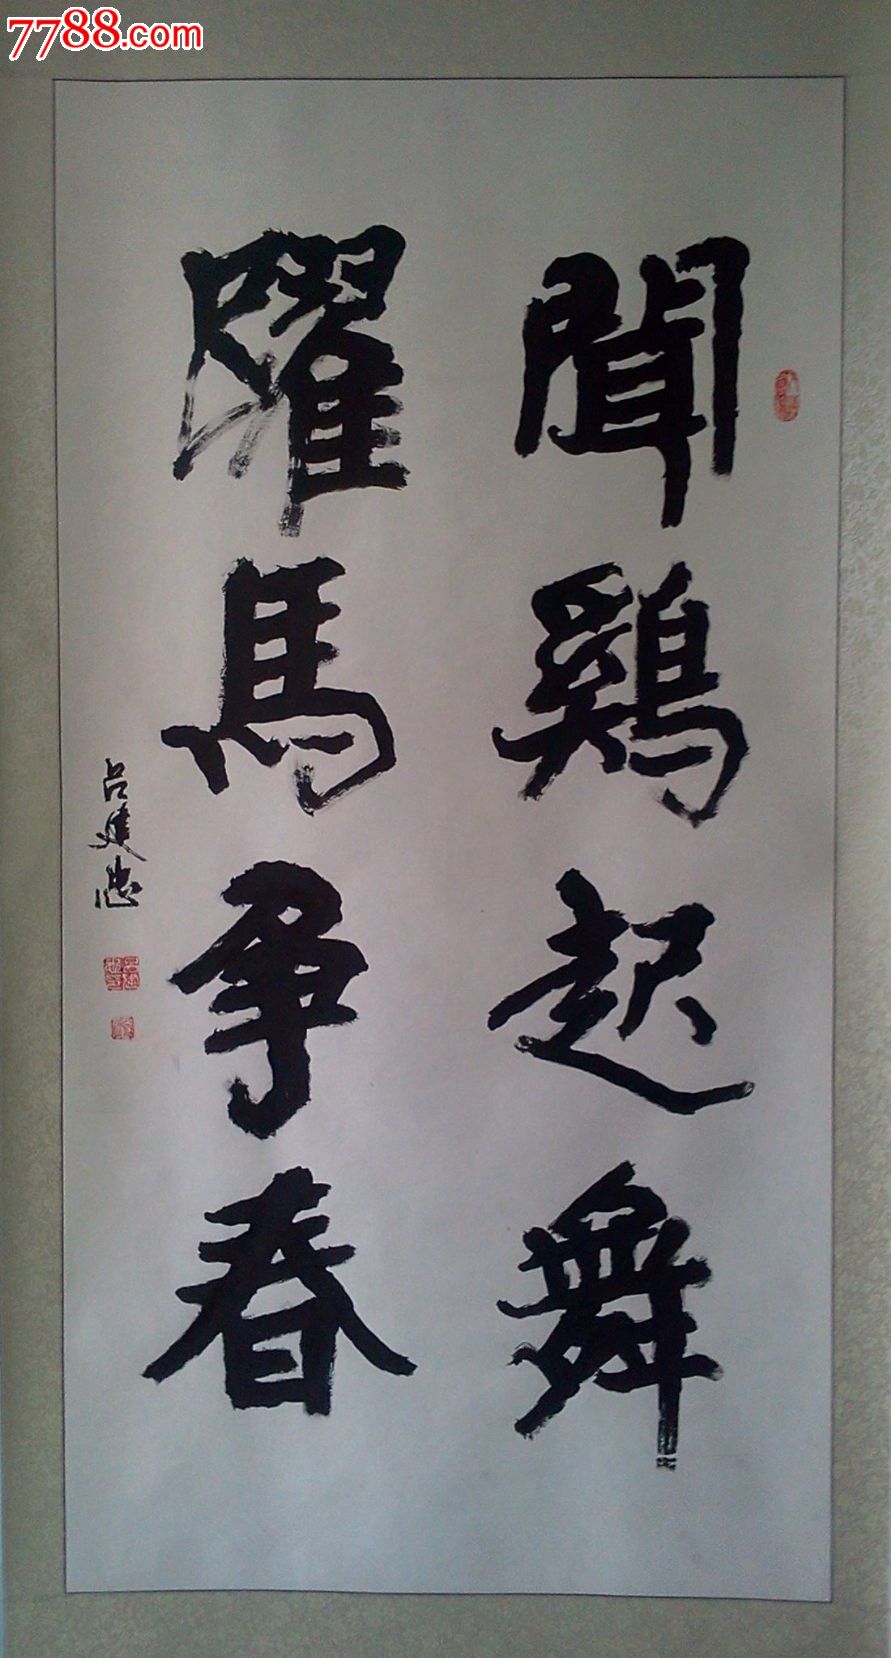 7788.com
聞鷄起舞
躍馬争春
吕建德